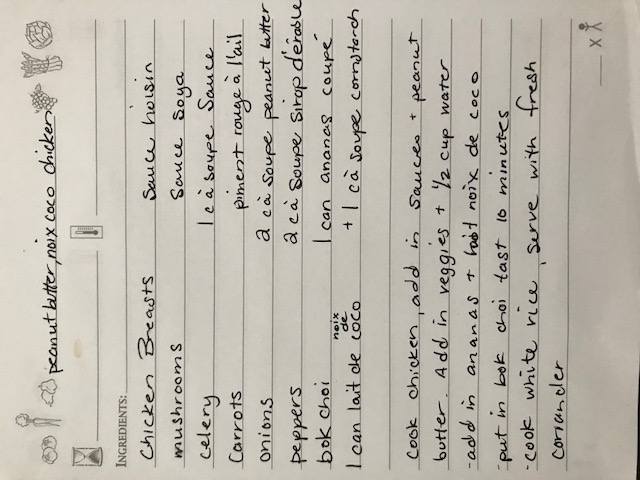 peanut butter, noix coco chicken
INGREDIENTS:
Chicken Breasts
mushrooms
celery
Carrots
onions
peppers
bok choi
noix
de
1 can lait de coco
Sauce hoisin
Sauce Soya
1 cà soupe Sauce
piment rouge à l'ail
2 cà soupe peanut butter
2 cà soupe Sirop d'érable
1 can ananas coupé
+ 1 cà soupe cornstarch
cook chicken, add in sauces + peanut
butter. Add in veggies + 1/2 cup water
-add in ananas + noix de coco
-put in bok choi last 10 minutes
-cook white rice, serve with fresh
coriander
X